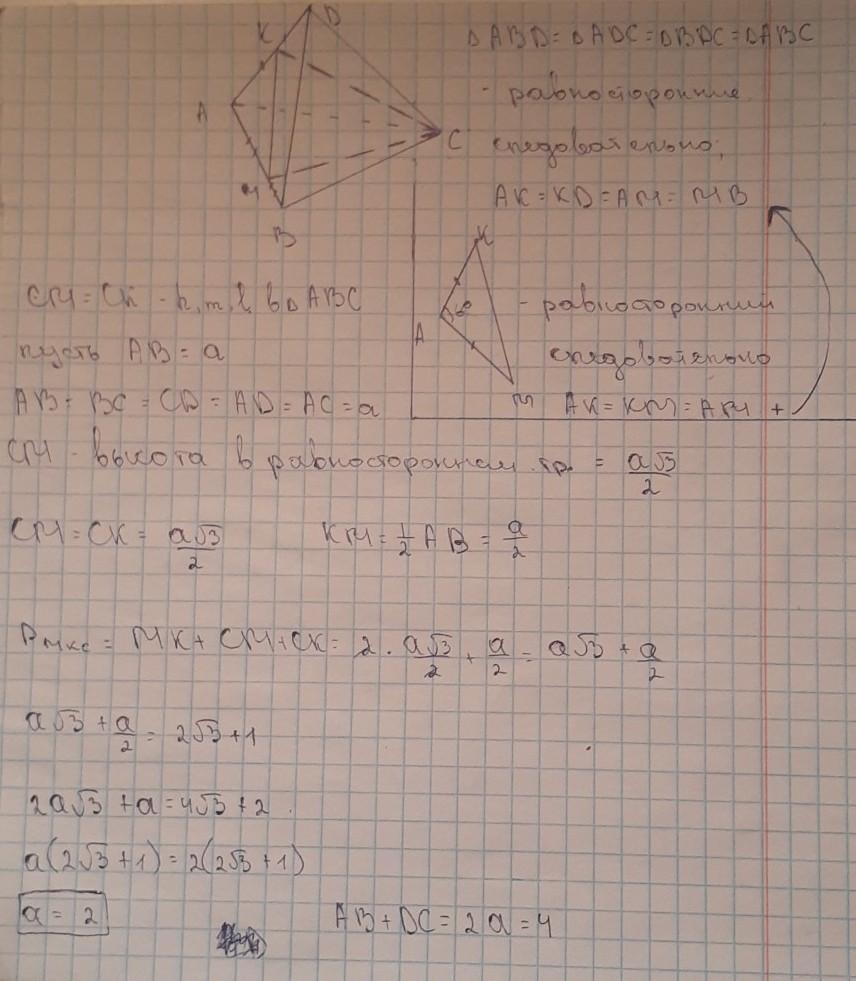 K
D
A
C
M
B
△ABD = △ADC = △BDC = △ABC
- равносторонние
следовательно;
AK = KD = AM = MB
K
A
60
M
- равносторонний
следовательно
AK = KM = AM +
CM = CK - h, m, l в △ABC
пусть AB = a
AB = BC = CD = AD = AC = a
CM - высота в равностороннем тр. = a√3/2
CM = CK = a√3/2 KM = 1/2 AB = a/2
Pмкс = MK + CM + CK = 2 · a√3/2 + a/2 = a√3 + a/2
a√3 + a/2 = 2√3 + 1
2a√3 + a = 4√3 + 2
a(2√3 + 1) = 2(2√3 + 1)
a = 2 AB + DC = 2a = 4